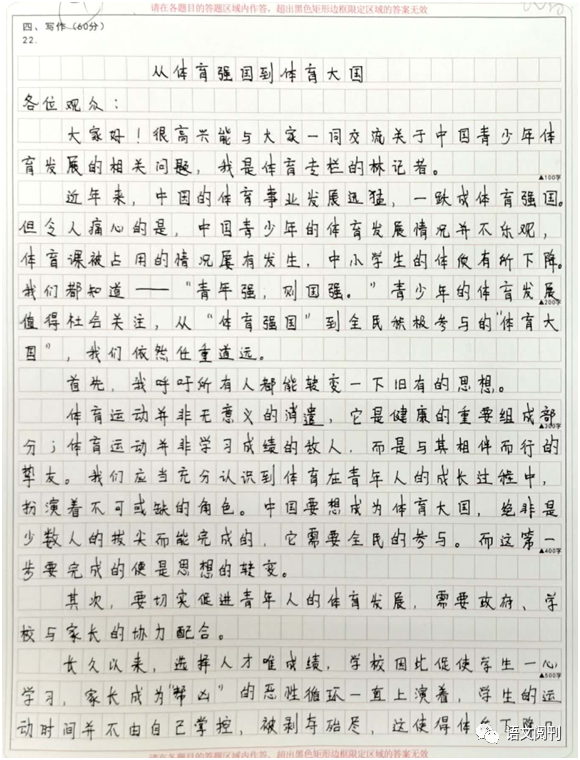 请在各题目的答题区域内作答，超出黑色矩形边框限定区域的答案无效
四、写作（60分）
22.
从体育强国到体育大国
各位观众：
大家好！很高兴能与大家一同交流关于中国青少年体
育发展的相关问题，我是体育专栏的林记者。
▲100字
近年来，中国的体育事业发展迅猛，一跃成体育强国。
但令人痛心的是，中国青少年的体育发展情况并不乐观，
体育课被占用的情况屡有发生，中小学生的体质有所下降。
我们都知道——“青年强，则国强。”青少年的体育发展
▲200字
值得社会关注，从“体育强国”到全民积极参与的“体育大
国”，我们依然任重道远。
首先，我呼吁所有人都能转变一下旧有的思想。
体育运动并非无意义的消遣，它是健康的重要组成部
▲300字
分；体育运动并非学习成绩的敌人，而是与其相伴而行的
挚友。我们应当充分认识到体育在青年人的成长过程中，
扮演着不可或缺的角色。中国要想成为体育大国，绝非是
少数人的拔尖而能完成的，它需要全民的参与。而这第一
▲400字
步要完成的便是思想的转变。
其次，要切实促进青年人的体育发展，需要政府、学
校与家长的协力配合。
长久以来，选择人才唯成绩，学校因此促使学生一心
▲500字
学习，家长成为“帮凶”的恶性循环一直上演着，学生的运
动时间并不由自己掌控，被剥夺殆尽，这使得体育下降
语文阅刊
请在各题目的答题区域内作答，超出黑色矩形边框限定区域的答案无效